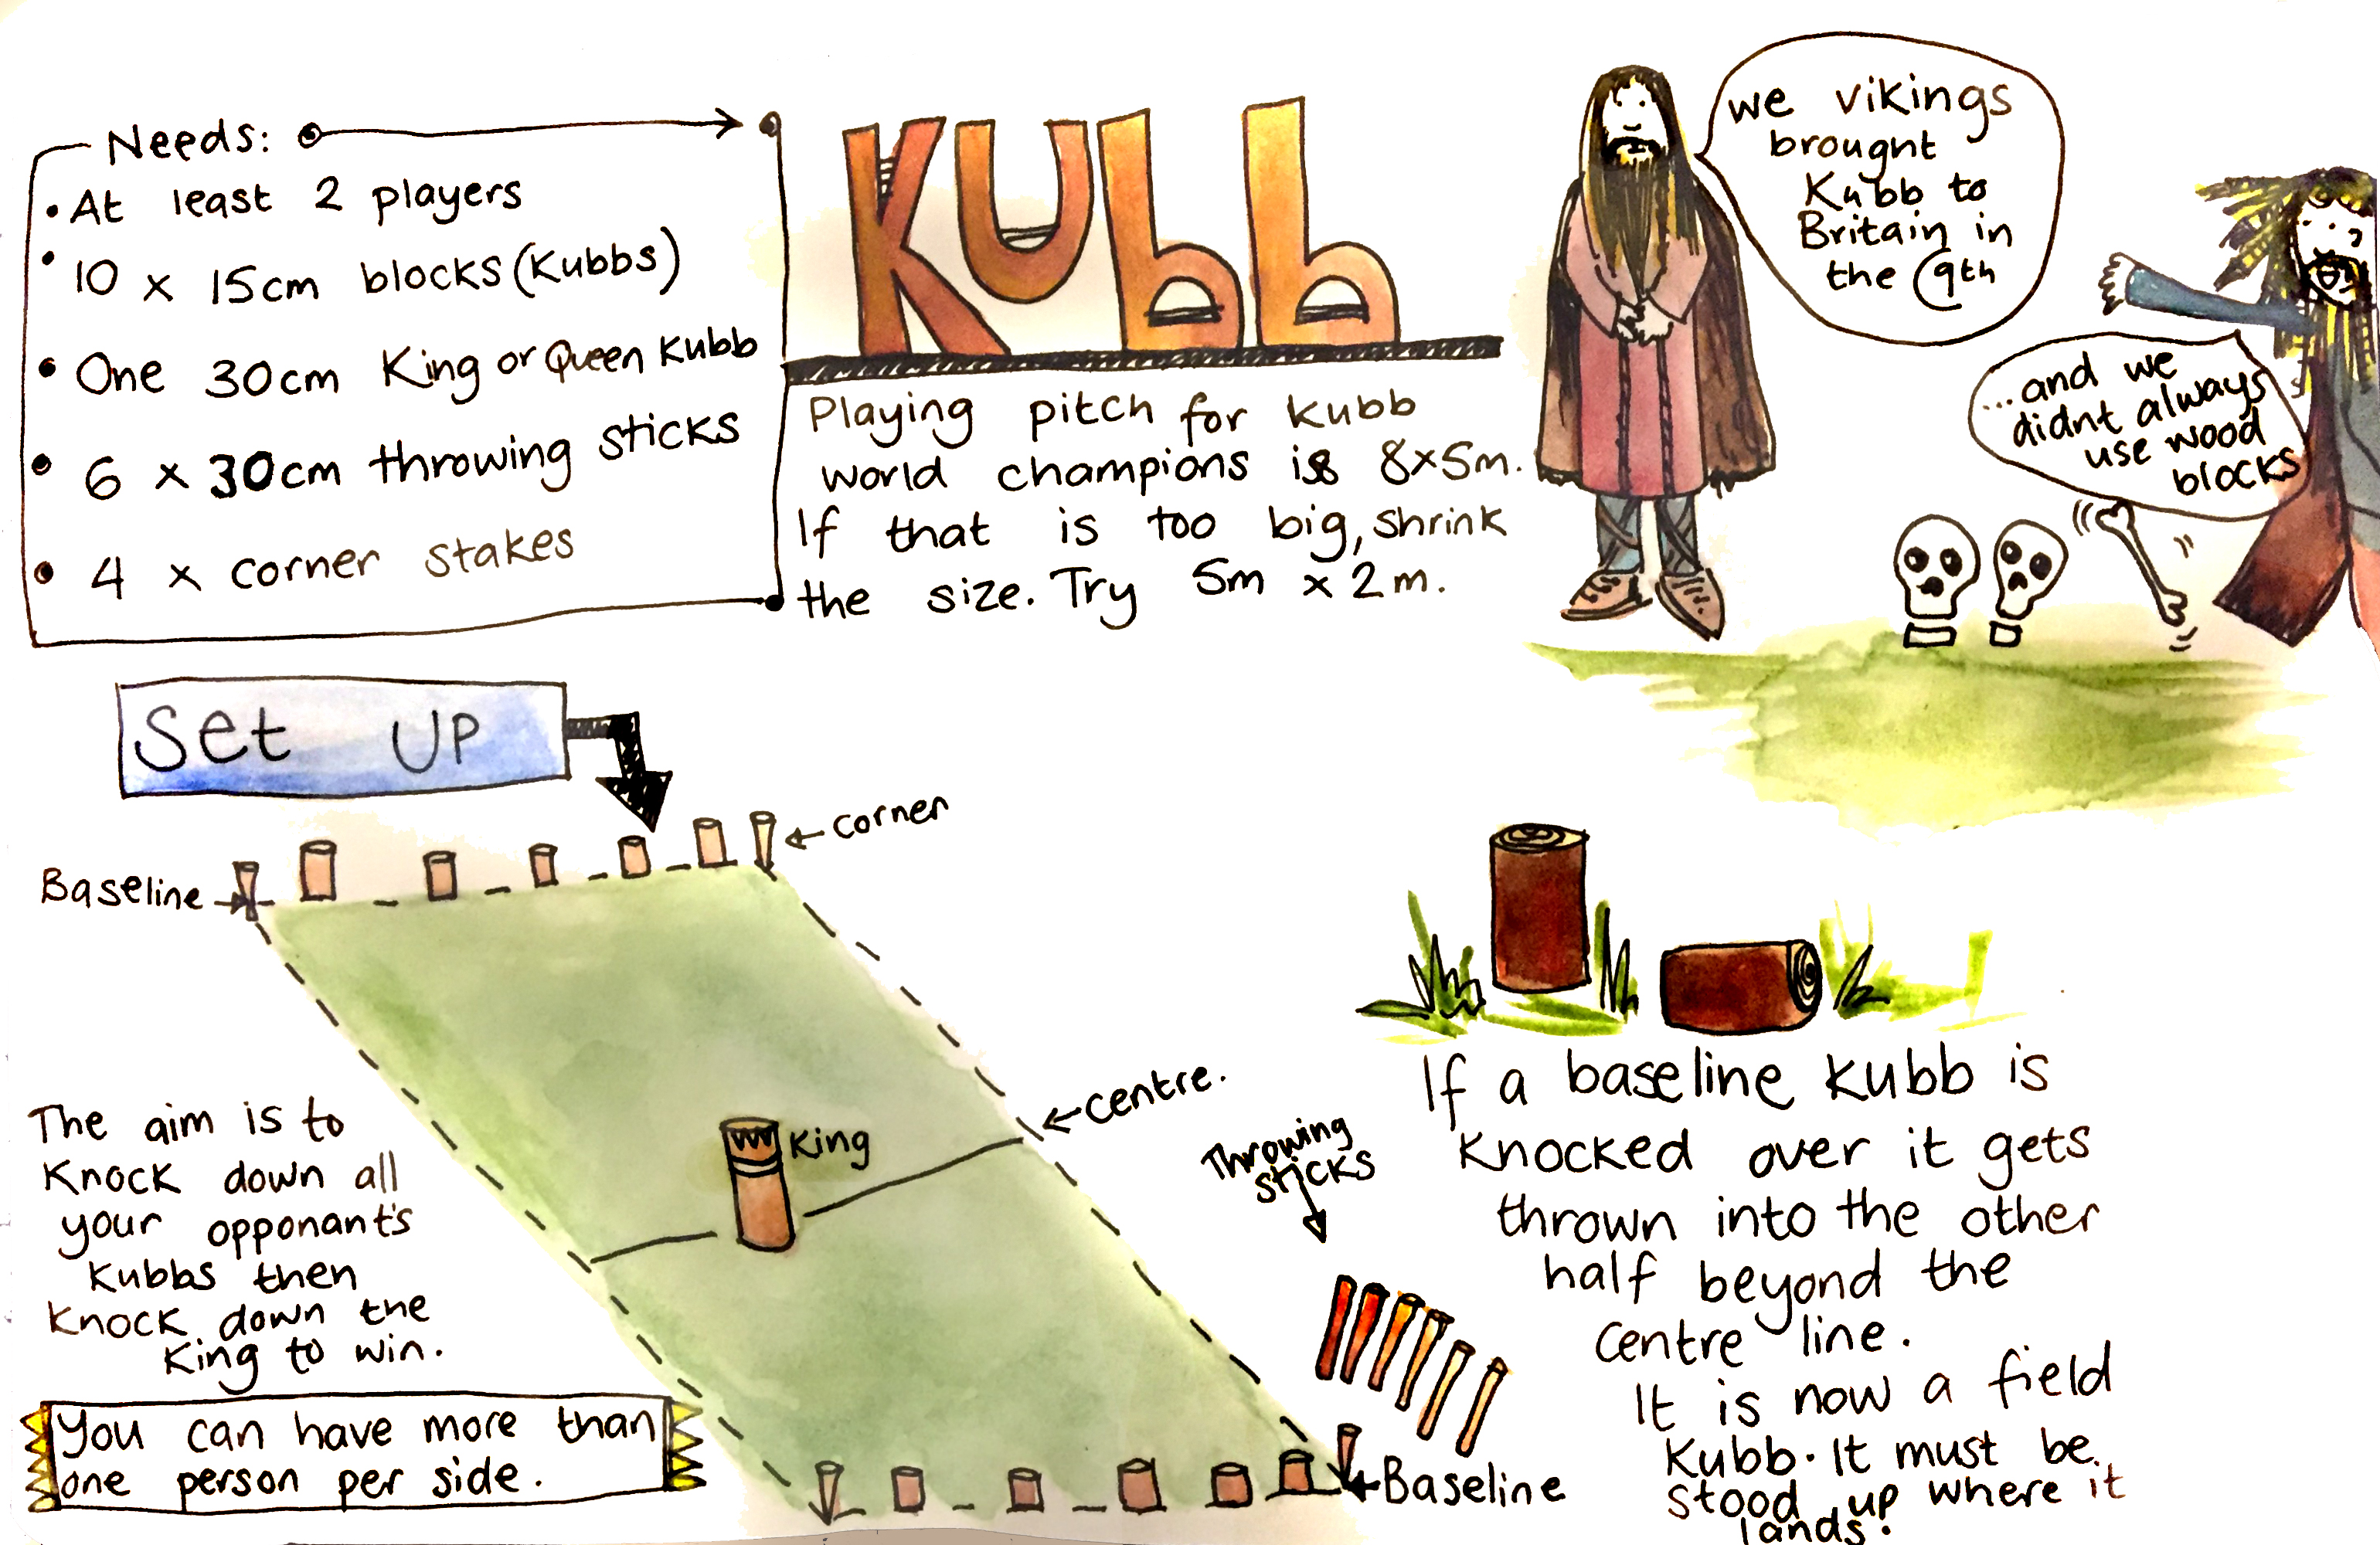 Needs:
• At least 2 players
• 10 x 15cm blocks (Kubbs)
• One 30cm King or Queen Kubb
• 6 x 30cm throwing sticks
• 4 x corner stakes
Kubb
Playing pitch for Kubb
world champions is 8x5m.
If that is too big, shrink
the size. Try 5m x 2m.
we vikings
brought
Kubb to
Britain in
the C9th
...and we
didnt always
use wood
blocks
Set UP
corner
Baseline
centre.
King
Throwing
sticks
Baseline
The aim is to
Knock down all
your opponant's
Kubbs then
Knock down the
King to win.
You can have more than
one person per side.
If a baseline Kubb is
Knocked over it gets
thrown into the other
half beyond the
centre line.
It is now a field
Kubb. It must be
stood up where it
lands.